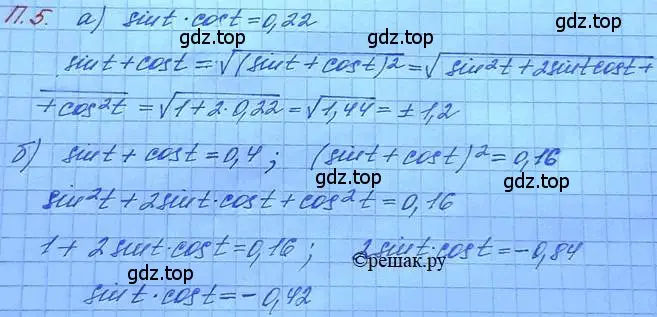 П.5. а) sint·cost=0,22
gdz.top gdz.top
sint+cost=√(sint+cost)²=√sin²t+2sintcost+
+cos²t=√1+2·0,22=√1,44=±1,2
gdz.top gdz.top
б) sint+cost=0,4; (sint+cost)²=0,16
gdz.top gdz.top
sin²t+2sint·cost+cos²t=0,16
gdz.top
1+2sint·cost=0,16; 2sint·cost=-0,84
©решак.ру
gdz.top gdz.top
sint·cost=-0,42